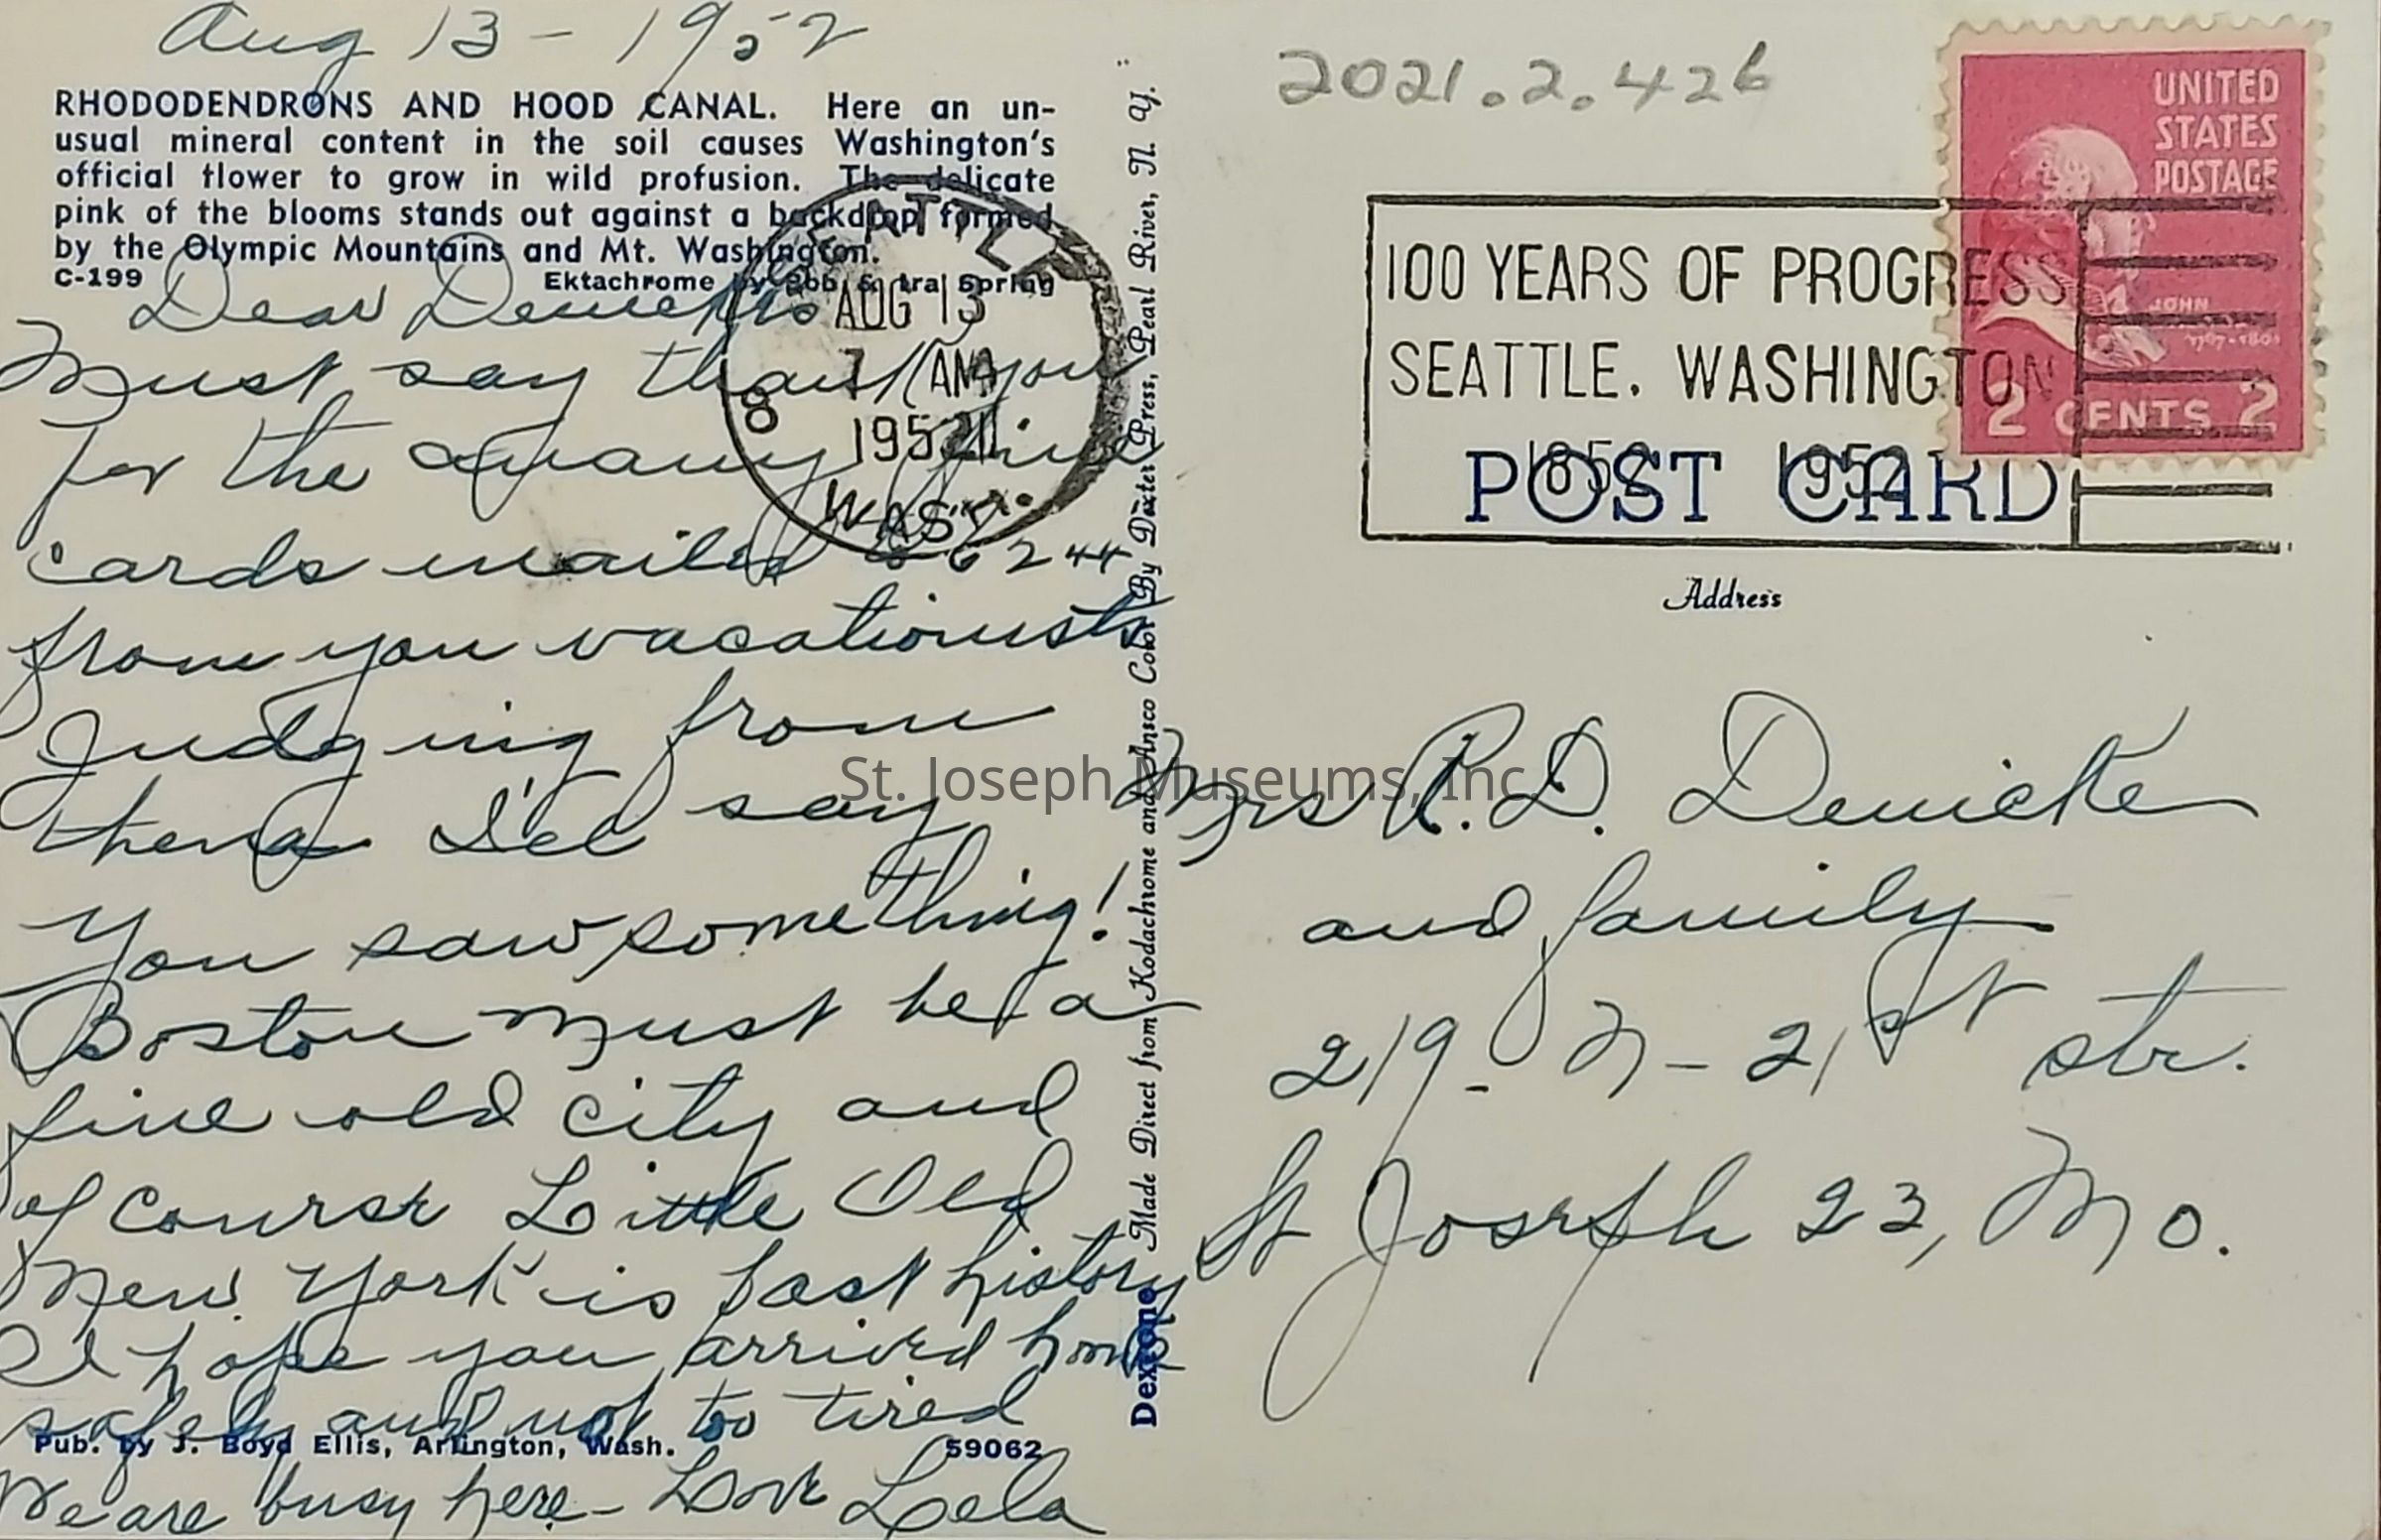 Aug 13 - 1952
RHODODENDRONS AND HOOD CANAL. Here an un-
usual mineral content in the soil causes Washington's
official flower to grow in wild profusion. The delicate
pink of the blooms stands out against a backdrop formed
by the Olympic Mountains and Mt. Washington.
C-199 Ektachrome by Bob & Ira Spring
Dear Denickes
Must say thank you
for the many fine
cards mailed to 6244
from you vacationists
Judging from
them I'd say
You saw something!
Boston must be a
fine old city and
of course Little Old
New York is fast history
I hope you arrived home
safely and not too tired
Pub. by J. Boyd Ellis, Arlington, Wash. 59062
We are busy here - Love Lela
SEATTLE
AUG 13
7 AM
1952
8
WASH.
Dextone Made Direct from Kodachrome and Ansco Color By Dexter Press, Pearl River, N. Y.
2021.2.426
UNITED
STATES
POSTAGE
JOHN
1797-1801
2 CENTS 2
100 YEARS OF PROGRESS
SEATTLE, WASHINGTON
1852 1952
POST CARD
Address
Mrs R. D. Denicke
and family
219 - N - 21st str.
St Joseph 23, Mo.
St. Joseph Museums, Inc.